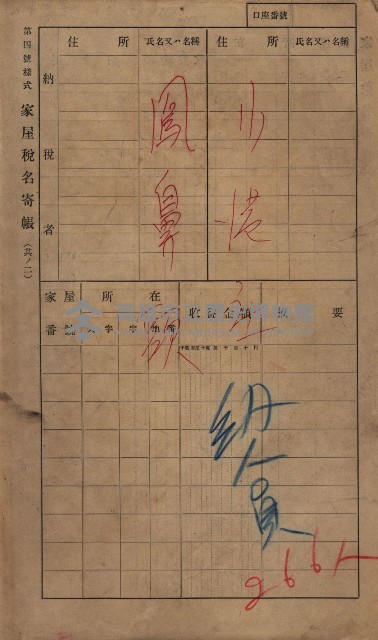 第四號樣式 家屋稅名寄帳 (其ノ二)
口座番號
住所
氏名又ハ名稱
住所
氏名又ハ名稱
納稅者
小港
鳳鼻頭
家屋番號
所在
大字
字
地番
收
金額
要
納人員
266人